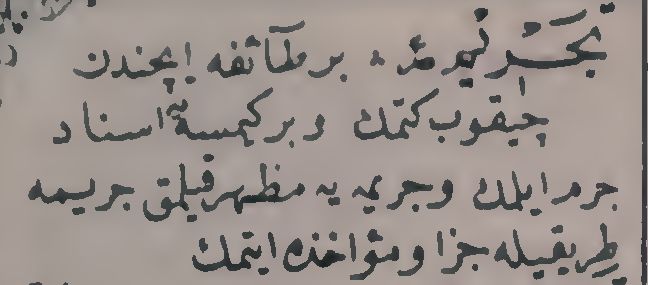 بر طائفه ایچندن
چیقوب كتمك و بر كیمسه‌یه اسناد
جرم ایلمك و جریمه یه مظهر قیلمق جریمه
طریقیله جزا و مؤاخذه ایتمك